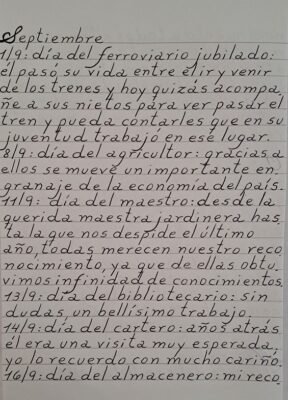 Septiembre
1/9: día del ferroviario jubilado:
él pasó su vida entre el ir y venir
de los trenes y hoy quizás acompa
ñe a sus nietos para ver pasar el
tren y pueda contarles que en su
juventud trabajó en ese lugar.
8/9: día del agricultor: gracias a
ellos se mueve un importante en
granaje de la economía del país.
11/9: día del maestro: desde la
querida maestra jardinera has
ta la que nos despide el último
año, todas merecen nuestro reco
nocimiento, ya que de ellas obtu
vimos infinidad de conocimientos.
13/9: día del bibliotecario: sin
dudas, un bellísimo trabajo.
14/9: día del cartero: años atrás
él era una visita muy esperada,
yo lo recuerdo con mucho cariño.
16/9: día del almacenero: mi reco